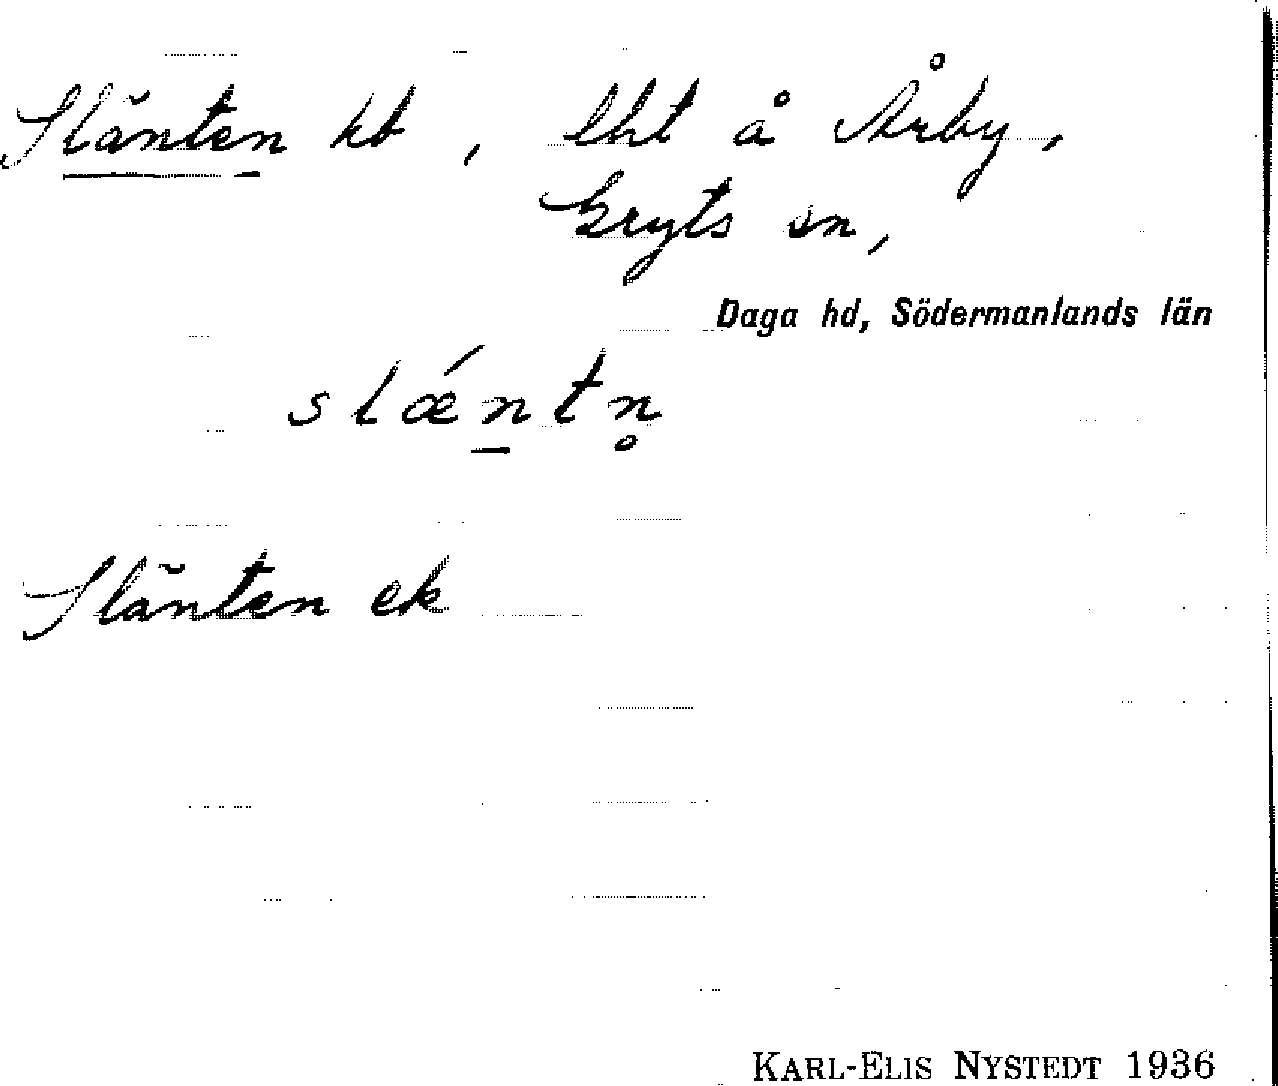 Slänten kt, lht å Årby,
Gryts sn,
Daga hd, Södermanlands län
slǽn̲tn̥
Slänten ek
KARL-ELIS NYSTEDT 1936